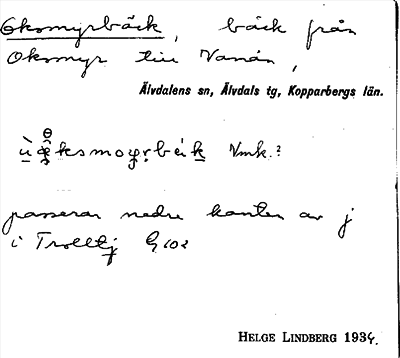 Oksmyrbäck, bäck från
Oksmyr till Vanån,
Älvdalens sn, Älvdals tg, Kopparbergs län.
Vmk.?
passerar nedre kanten av j
i Trolltj G 102
HELGE LINDBERG 1934.